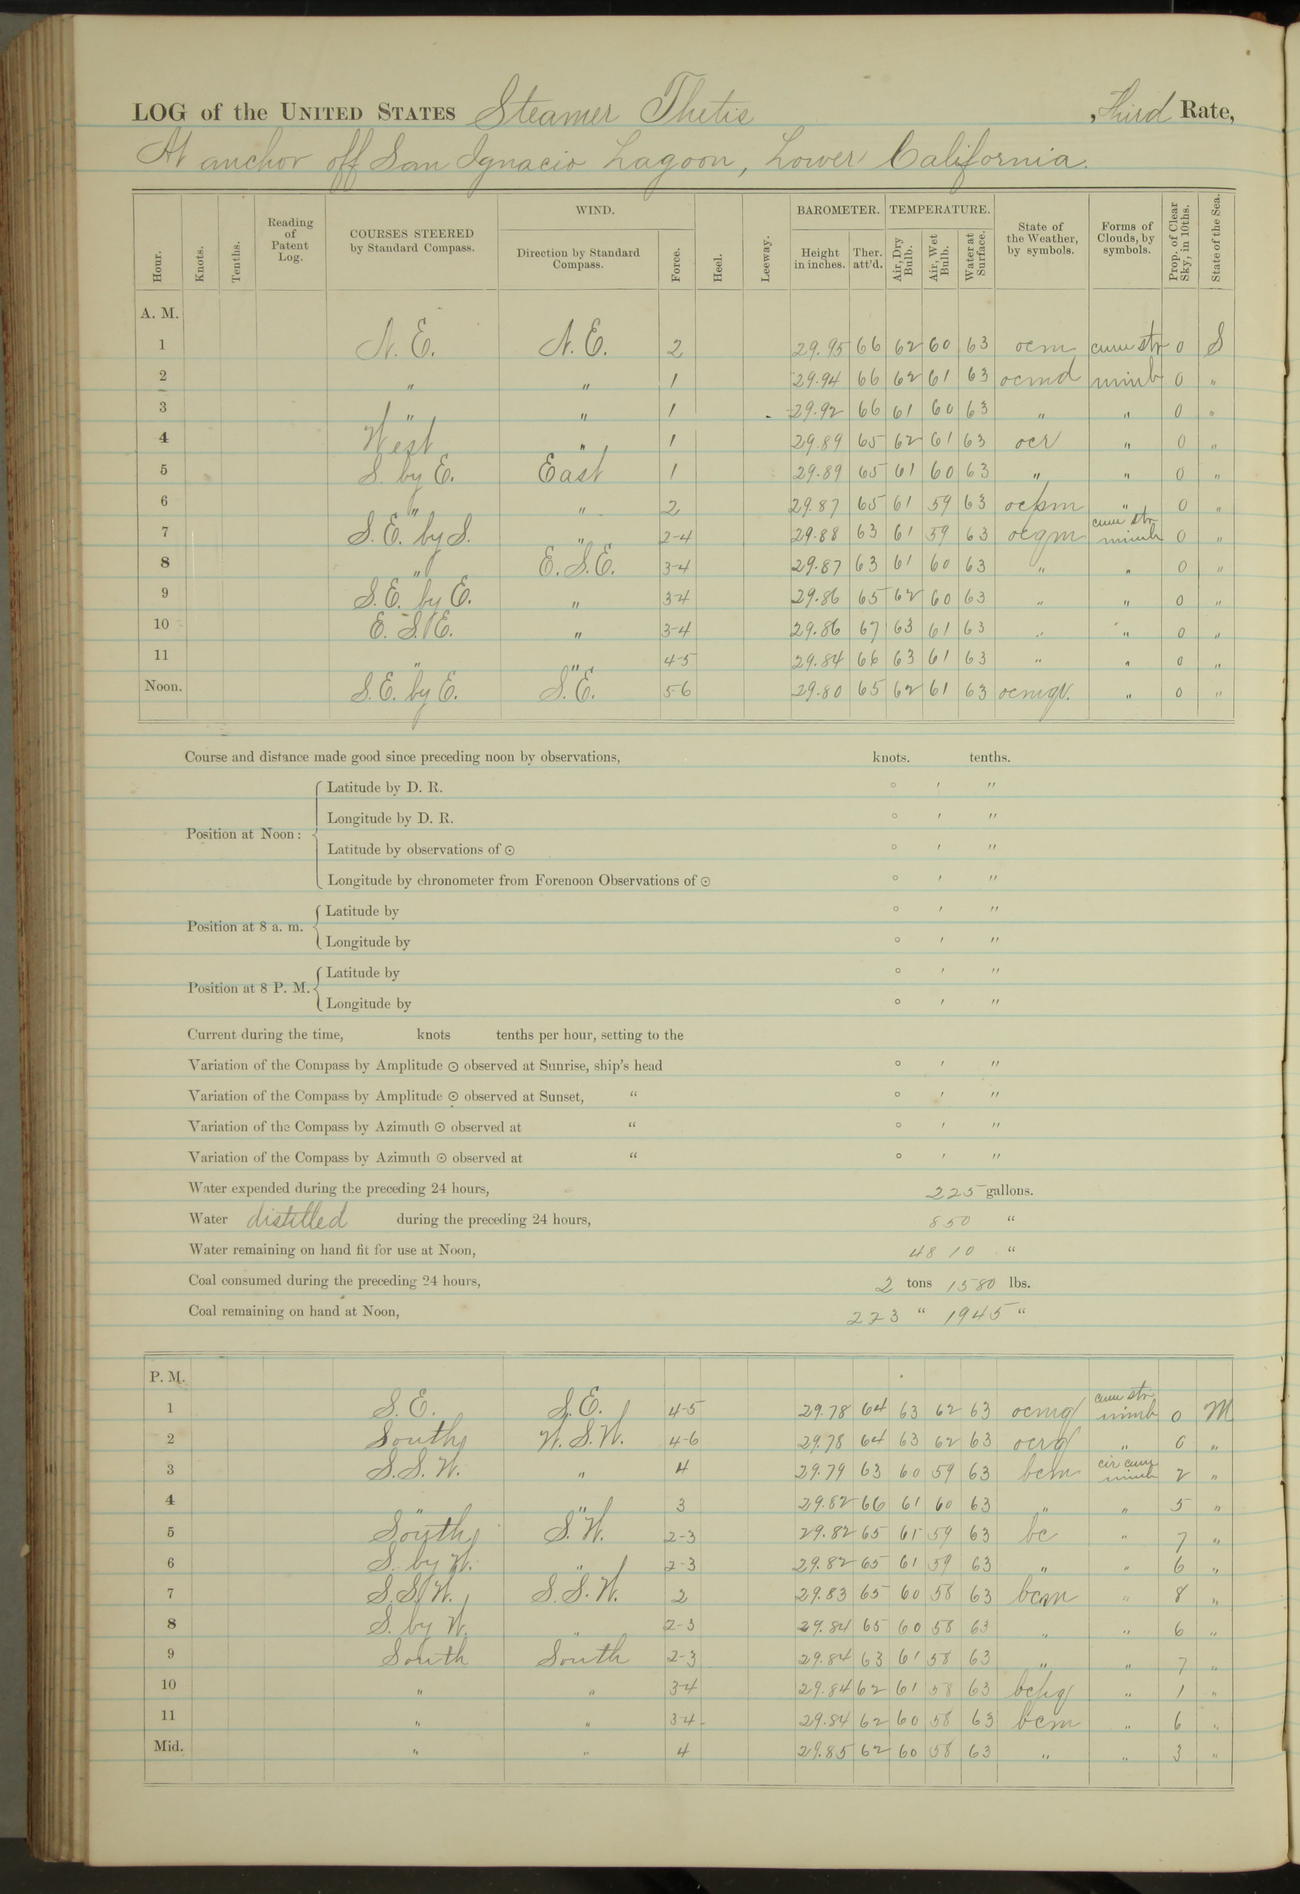 LOG of the UNITED STATES Steamer Thetis, Third Rate,
At anchor off San Ignacio Lagoon, Lower California.
Hour. Knots. Tenths. Reading of Patent Log. COURSES STEERED by Standard Compass. WIND. Direction by Standard Compass. Force. Heel. Leeway. BAROMETER. Height in inches. Ther. att'd. TEMPERATURE. Air, Dry Bulb. Air, Wet Bulb. Water at Surface. State of the Weather, by symbols. Forms of Clouds, by symbols. Prop. of Clear Sky, in 10ths. State of the Sea.
A. M.
1 N. E. N. E. 2 29.95 66 62 60 63 ocm cum str 0 S
2 " " 1 29.94 66 62 61 63 ocmd nimb 0 "
3 " " 1 29.92 66 61 60 63 " " 0 "
4 West " 1 29.89 65 62 61 63 ocr " 0 "
5 S. by E. East 1 29.89 65 61 60 63 " " 0 "
6 " " 2 29.87 65 61 59 63 ocpm " 0 "
7 S. E. by S. " 2-4 29.88 63 61 59 63 ocqm cum str nimb 0 "
8 " E. S. E. 3-4 29.87 63 61 60 63 " " 0 "
9 S. E. by E. " 3-4 29.86 65 62 60 63 " " 0 "
10 E. S. E. " 3-4 29.86 67 63 61 63 " " 0 "
11 " " 4-5 29.84 66 63 61 63 " " 0 "
Noon. S. E. by E. S. E. 5-6 29.80 65 62 61 63 ocmqr. " 0 "
Course and distance made good since preceding noon by observations, knots. tenths.
Position at Noon:
Latitude by D. R. ° ′ ″
Longitude by D. R. ° ′ ″
Latitude by observations of ⊙ ° ′ ″
Longitude by chronometer from Forenoon Observations of ⊙ ° ′ ″
Position at 8 a. m.
Latitude by ° ′ ″
Longitude by ° ′ ″
Position at 8 P. M.
Latitude by ° ′ ″
Longitude by ° ′ ″
Current during the time, knots tenths per hour, setting to the
Variation of the Compass by Amplitude ⊙ observed at Sunrise, ship's head ° ′ ″
Variation of the Compass by Amplitude ⊙ observed at Sunset, " ° ′ ″
Variation of the Compass by Azimuth ⊙ observed at " ° ′ ″
Variation of the Compass by Azimuth ⊙ observed at " ° ′ ″
Water expended during the preceding 24 hours, 225 gallons.
Water distilled during the preceding 24 hours, 850 "
Water remaining on hand fit for use at Noon, 4810 "
Coal consumed during the preceding 24 hours, 2 tons 1580 lbs.
Coal remaining on hand at Noon, 223 " 1945 "
P. M.
1 S. E. S. E. 4-5 29.78 64 63 62 63 ocmq cum str. nimb 0 M
2 South W. S. W. 4-6 29.78 64 63 62 63 ocrq " 0 "
3 S. S. W. " 4 29.79 63 60 59 63 bcm cir cum nimb 2 "
4 " " 3 29.82 66 61 60 63 " " 5 "
5 South S. W. 2-3 29.82 65 61 59 63 bc " 7 "
6 S. by W. " 2-3 29.82 65 61 59 63 " " 6 "
7 S. S. W. S. S. W. 2 29.83 65 60 58 63 bcm " 8 "
8 S. by W. " 2-3 29.84 65 60 58 63 " " 6 "
9 South South 2-3 29.84 63 61 58 63 " " 7 "
10 " " 3-4 29.84 62 61 58 63 bcpq " 1 "
11 " " 3-4 29.84 62 60 58 63 bcm " 6 "
Mid. " " 4 29.85 62 60 58 63 " " 3 "